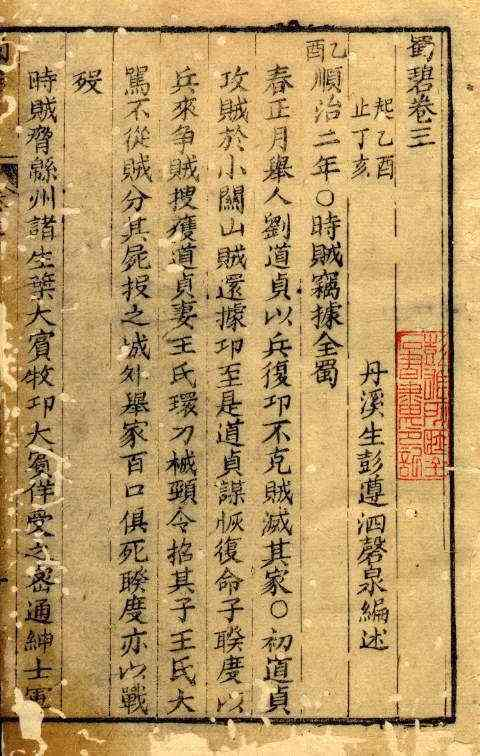 蜀碧卷三
起乙酉
止丁亥
丹溪生彭遵泗磬泉編述
乙酉
順治二年○時賊竊據全蜀
春正月舉人劉道貞以兵復卭不克賊滅其家○初道貞
攻賊於小關山賊還據卭至是道貞謀恢復命子睽度以
兵來爭賊搜獲道貞妻王氏環刀械頸令招其子王氏大
罵不從賊分其屍投之城外舉家百口俱死睽度亦以戰
歿
時賊脅緜州諸生葉大賓牧卭大賓佯受之密通紳士軍